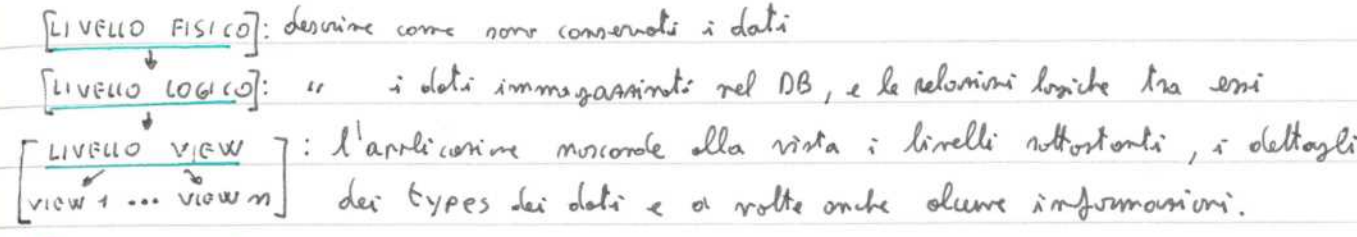 [LIVELLO FISICO]: descrive come sono conservati i dati
[LIVELLO LOGICO]: " i dati immagazzinati nel DB, e le relazioni logiche tra essi
[LIVELLO VIEW]: l'applicazione nasconde alla vista i livelli sottostanti, i dettagli
[VIEW 1 ... VIEW n] dei types dei dati e a volte anche alcune informazioni.